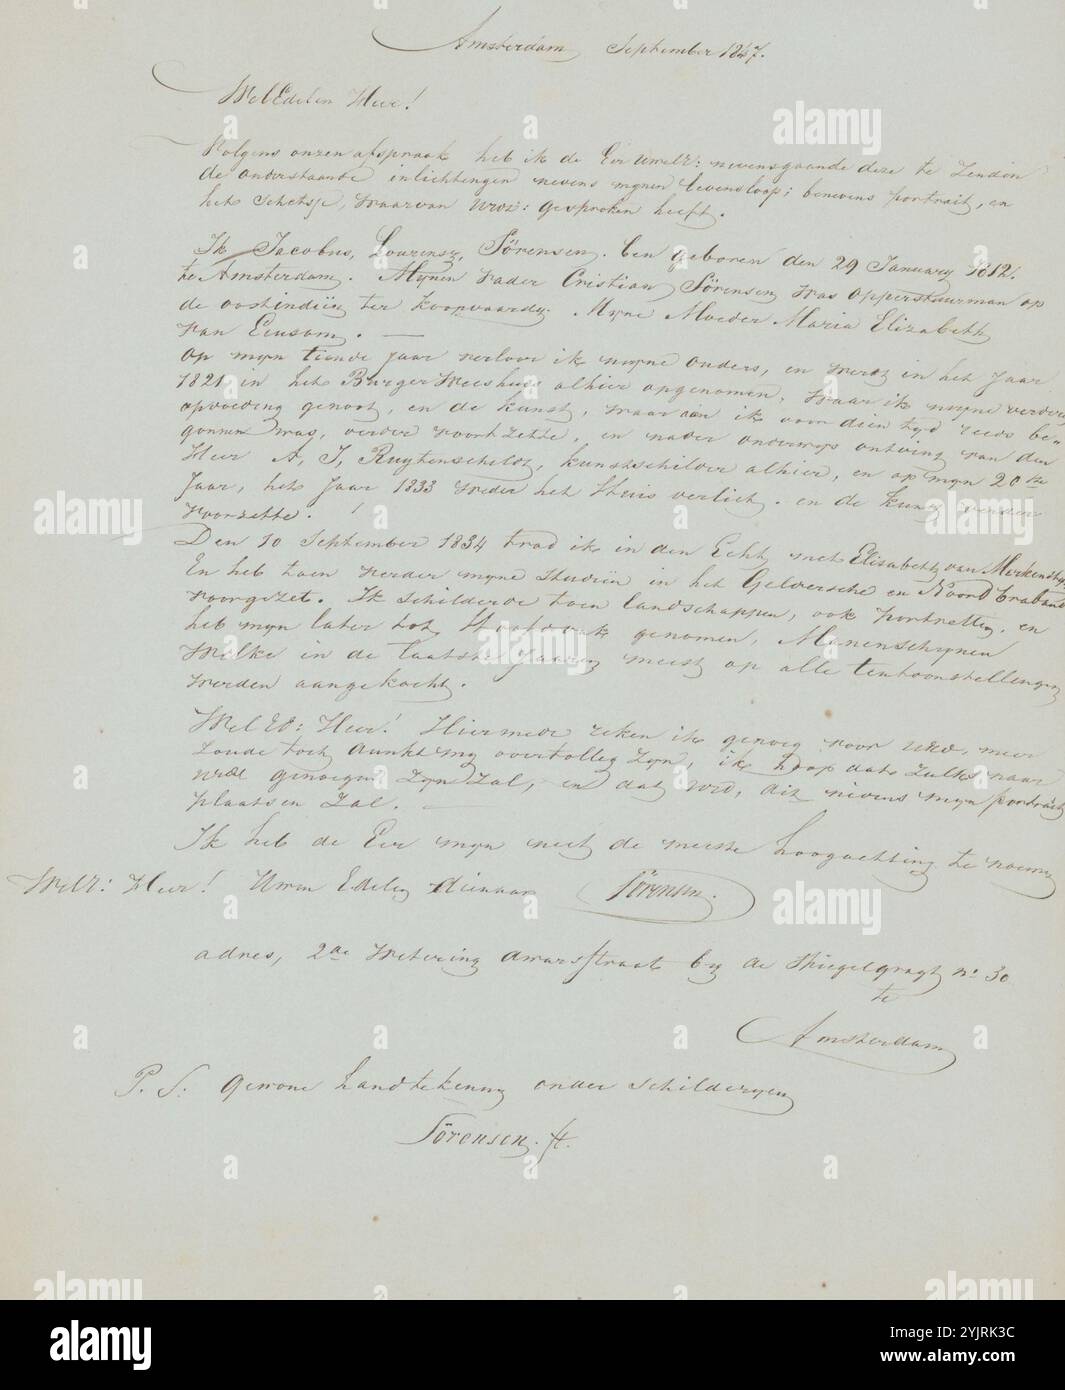 Amsterdam September 1847.
WelEdelen Heer!
Volgens onzen afspraak heb ik de Eer Uwelz: nevensgaande deze te Zenden
de onderstaande inlichtingen nevens mynen levensloop; benevens portrait, en
het Schetsje, waarvan Uwe: gesproken heeft.
Ik Jacobus, Lourensz, Sörensen. ben geboren den 29 January 1812.
te Amsterdam. Mynen Vader Cristiaan Sörensen was opperstuurman op
de oostindiën ter koopvaardy. Myne Moeder Maria Elizabeth
van Eensom. —
Op myn tiende Jaar verloor ik myne ouders, en werd in het Jaar
1821 in het Burger Weeshuys alhier opgenomen, waar ik myne verdere
opvoeding genoot, en de kunst, waar aan ik voor dien tyd reeds be-
gonnen was, verder voort zette, en nader onderwys ontving van den
Heer A, J, Ruytenschildt, kunstschilder alhier, en op myn 20ste
Jaar, het Jaar 1833 weder het Huis verliet. en de kunst verder
voorzette.
Den 10 September 1834 trad ik in den Echt met Elisabeth van
En heb toen verder myne Studiën in het Geldersche en Noord braband
voorgezet. Ik schilderde toen landschappen, ook portretten, en
heb myn later tot Hoofdvak genomen, Manenschynen
Welke in de laatste Jaaren meest op alle tentoonstellingen
werden aangekocht.
WelEd: Heer! Hiermede reken ik genoeg voor uwe, meer
Zoude toch dunkt my overtollig zyn, ik hoop dat Zulks naar
uwe genoegen zyn zal, en dat uwe, dit nevens myn portrait
plaatsen zal. —
Ik heb de Eer myn met de meeste hoogachting te noemen
Welz: Heer! Uwen Edelen dienaar Sörensen.
adres, 2de Wetering dwarsstraat by de Spiegelgragt no 30
te
Amsterdam
P. S. Gewone handtekening onder schilderyen
Sörensen. ft.
alamy
Image ID: 2YJRK3C
www.alamy.com